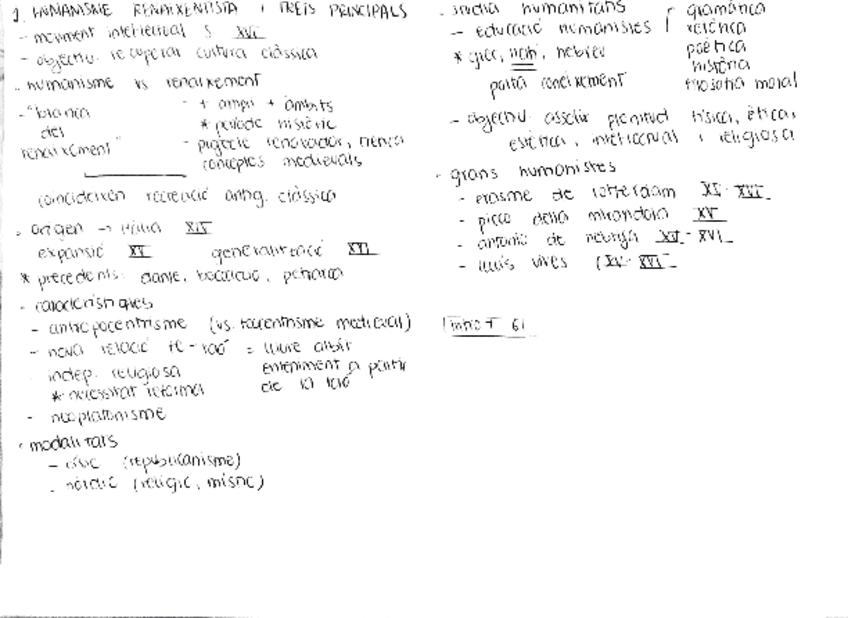 1. HUMANISME RENAIXENTISTA I TRETS PRINCIPALS
- moviment intel·lectual S. XVI
- objectiu: recuperar cultura clàssica
- humanisme vs renaixement
- "branca del renaixement"
- + ampli + àmbits
* període històric
- projecte renovador, trenca conceptes medievals
coincideixen recreació antig. clàssica
- origen → Itàlia XIV
expansió XV generalització XVI
* precedents: Dante, Boccaccio, Petrarca
- característiques
- antropocentrisme (vs. teocentrisme medieval)
- nova relació fe-raó = lliure albir
indep. religiosa enteniment a partir
* necessitat reforma de la raó
- neoplatonisme
- modalitats
- cívic (republicanisme)
- nòrdic (religió, místic)
- studia humanitatis
- educació humanistes
gramàtica
retòrica
poètica
història
filosofia moral
* grec, llatí, hebreu
porta coneixement
- objectiu: assolir plenitud física, ètica,
estètica, intel·lectual i religiosa
- grans humanistes
- erasme de rotterdam XV-XVI
- picco della mirandola XV
- antonio de nebrija XV-XVI
- lluís vives (XV-XVI